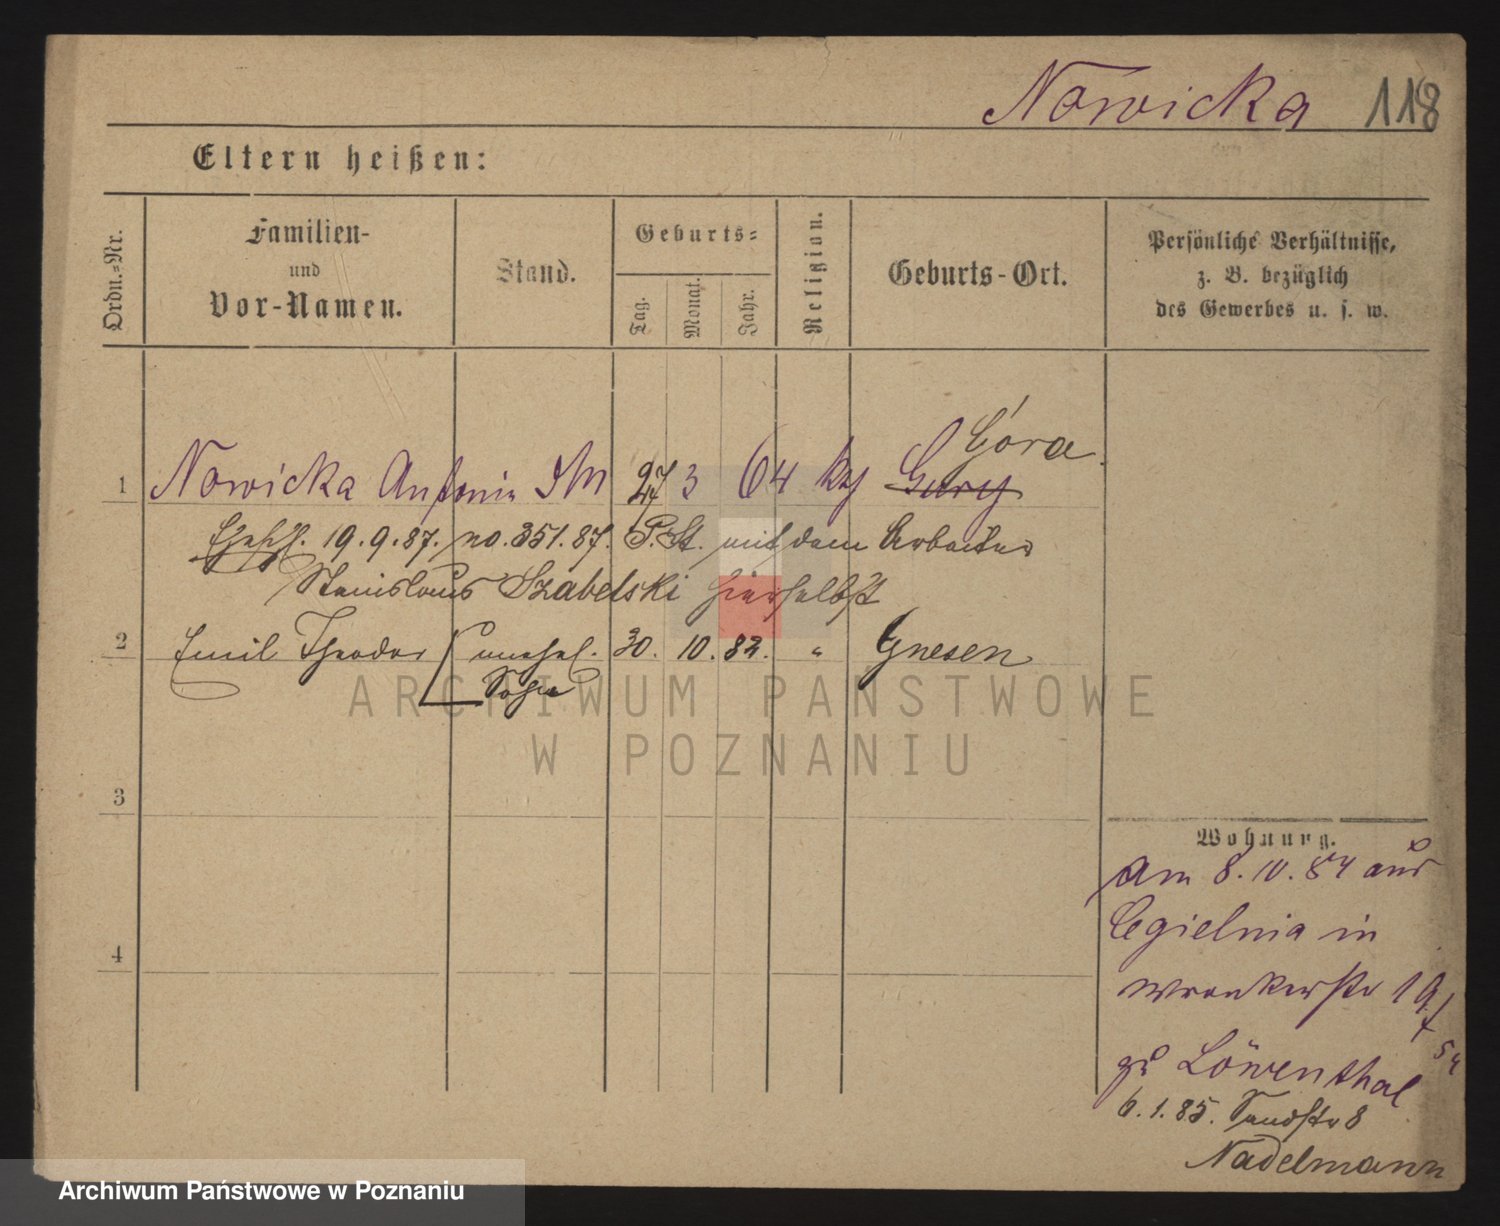 Nowicka 118
Eltern heißen:
Ordn.=Nr.
Familien-
und
Vor-Namen.
Stand.
Geburts=
Tag.
Monat.
Jahr.
Religion.
Geburts-Ort.
Persönliche Verhältnisse,
z. B. bezüglich
des Gewerbes u. s. w.
Góra
1 Nowicka Antonie 27 3 64 Gury
19.9.87. no. 351.87. P. St. mit dem Arbeiter
Stanislaus Szabelski hierselbst
2 Emil Theodor unehel. 30. 10. 82. " Gnesen
Sohn
ARCHIWUM PAŃSTWOWE
W POZNANIU
3
4
Wohnung.
am 8.10.84 aus
Cegielnia in
Wronkerstr 19
zu Löwenthal
6.1.85. Sandstr 8
Nadelmann
Archiwum Państwowe w Poznaniu